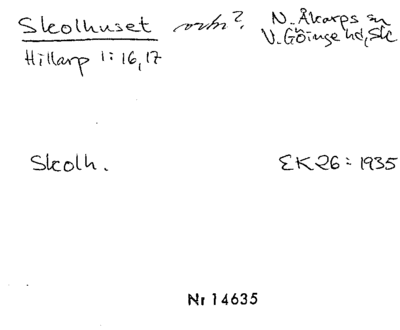 Skolhuset ortn?. N. Åkarps sn
Hillarp 1:16,17 V. Göinge hd, Sk
Skolh. EK26: 1935
Nr 14635